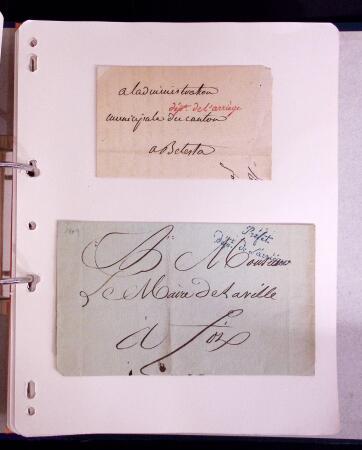 a ladministration
dépt. de l'arriège
municipale du canton
a Belesta
1809
Préfet
dépt. de l'arriège
A Monsieur
Le Maire de la ville
à Foix